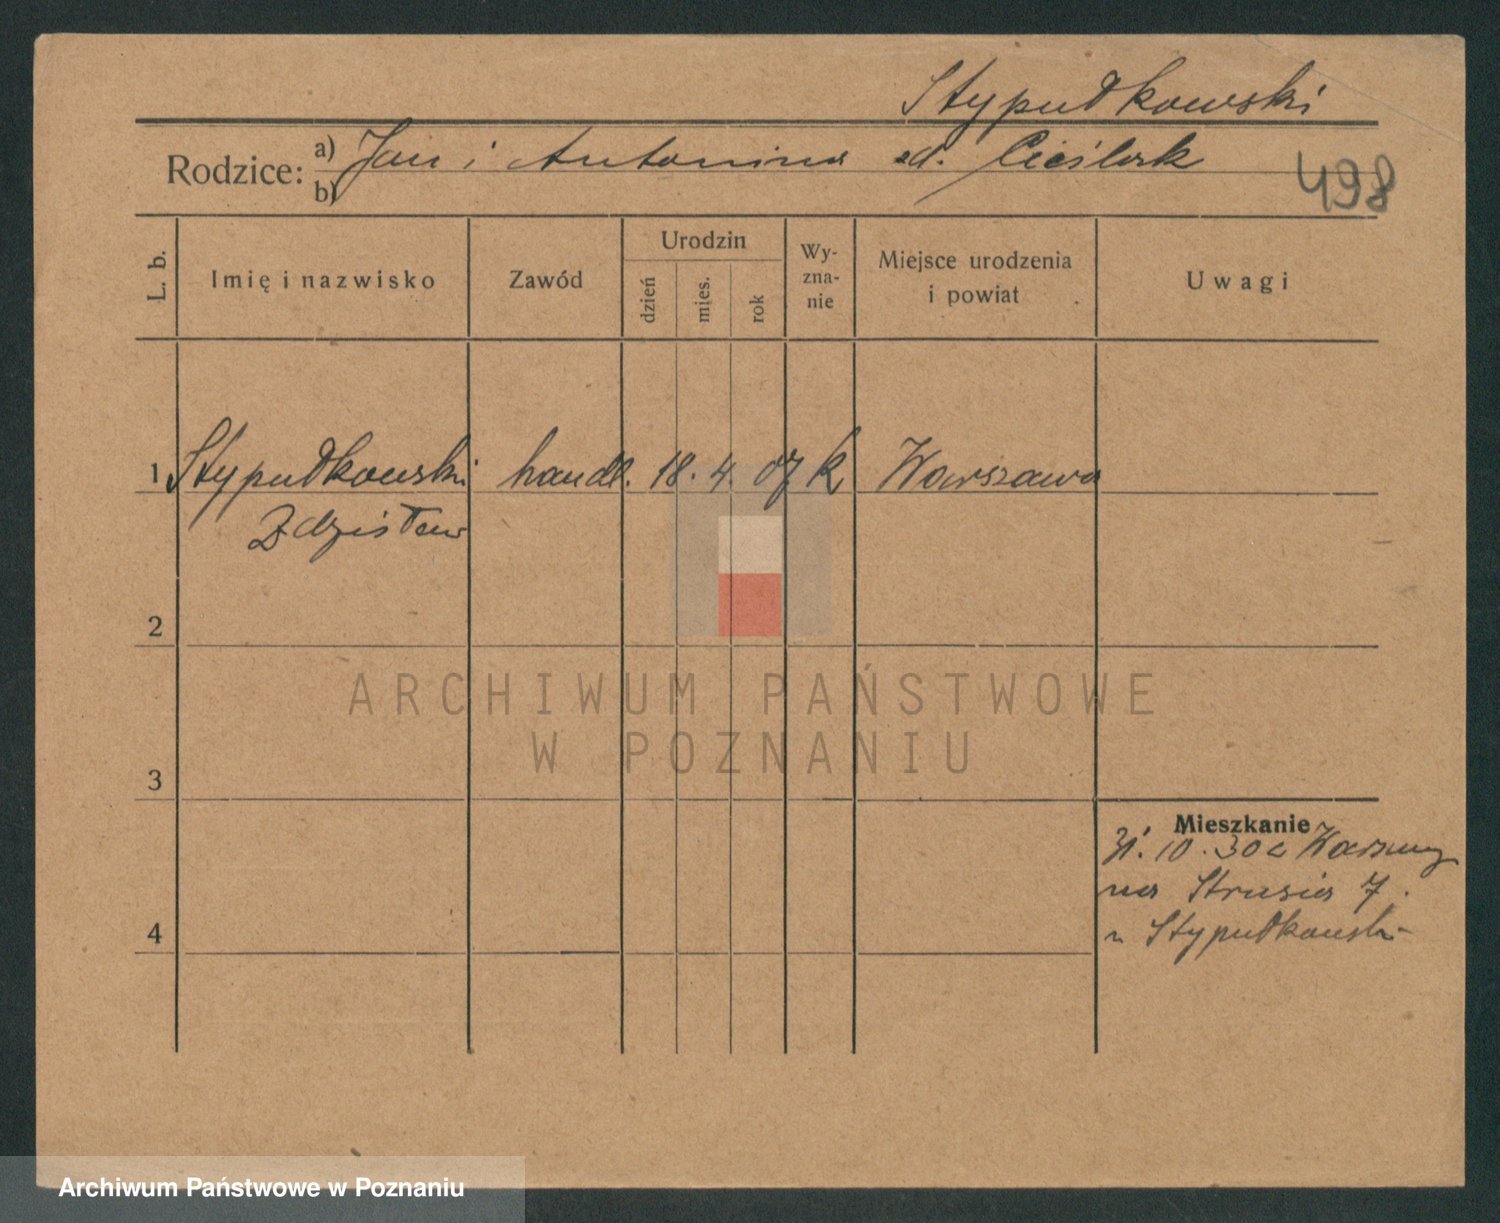 Stypułkowski
Rodzice: a) Jan i Antonina zd. Cieślak
b)
498
L. b.
Imię i nazwisko
Zawód
Urodzin
dzień
mies.
rok
Wy-
zna-
nie
Miejsce urodzenia
i powiat
Uwagi
1 Stypułkowski handl. 18. 4. 07 k Warszawa
Zdzisław
2
3
4
Mieszkanie
10. 30 z Warszawy
na Strusia 7.
Stypułkowski
ARCHIWUM PAŃSTWOWE
W POZNANIU
Archiwum Państwowe w Poznaniu